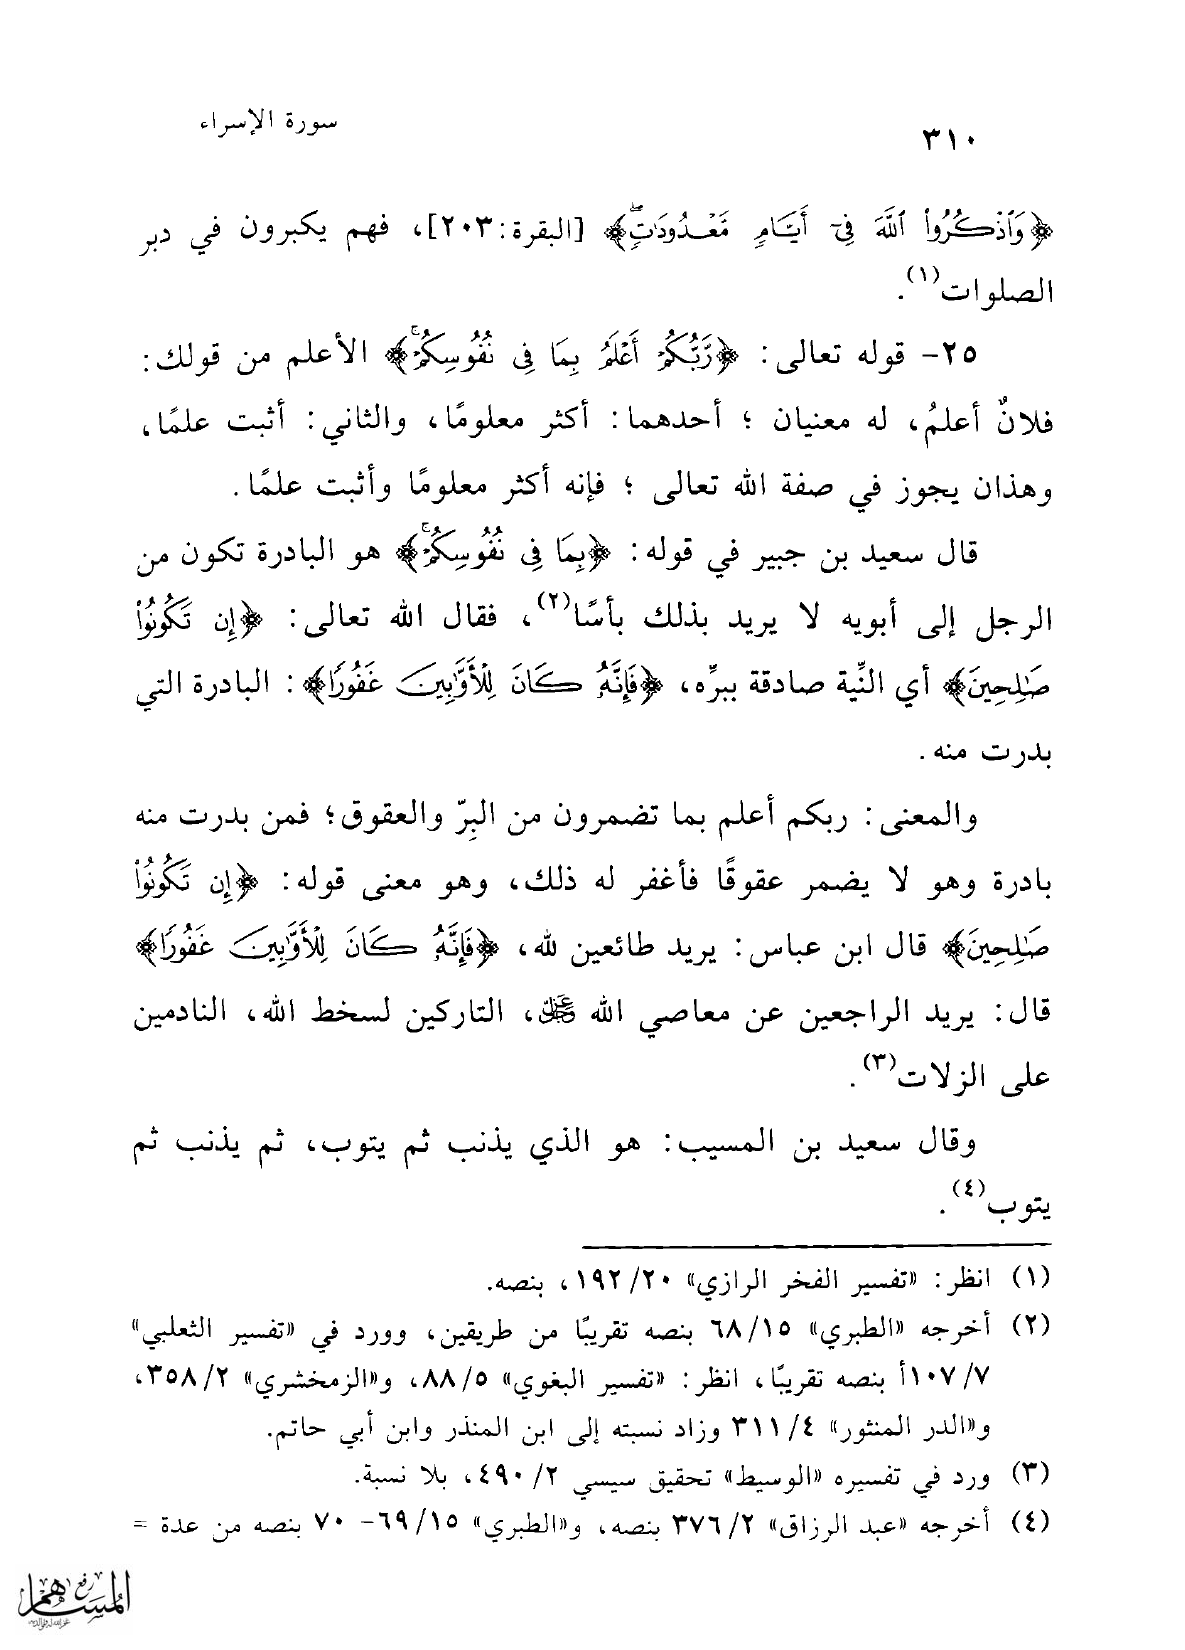 ٣١٠
سورة الإسراء
﴿وَٱذْكُرُوا۟ ٱللَّهَ فِىٓ أَيَّامٍ مَّعْدُودَٰتٍ﴾ [البقرة:٢٠٣]، فهم يكبرون في دبر
الصلوات(١).
٢٥- قوله تعالى: ﴿رَّبُّكُمْ أَعْلَمُ بِمَا فِى نُفُوسِكُمْ﴾ الأعلم من قولك:
فلانٌ أعلمُ، له معنيان ؛ أحدهما: أكثر معلومًا، والثاني: أثبت علمًا،
وهذان يجوز في صفة الله تعالى ؛ فإنه أكثر معلومًا وأثبت علمًا.
قال سعيد بن جبير في قوله: ﴿بِمَا فِى نُفُوسِكُمْ﴾ هو البادرة تكون من
الرجل إلى أبويه لا يريد بذلك بأسًا(٢)، فقال الله تعالى: ﴿إِن تَكُونُوا۟
صَٰلِحِينَ﴾ أي النِّية صادقة ببرِّه، ﴿فَإِنَّهُۥ كَانَ لِلْأَوَّٰبِينَ غَفُورًا﴾: البادرة التي
بدرت منه.
والمعنى: ربكم أعلم بما تضمرون من البِرّ والعقوق؛ فمن بدرت منه
بادرة وهو لا يضمر عقوقًا فأغفر له ذلك، وهو معنى قوله: ﴿إِن تَكُونُوا۟
صَٰلِحِينَ﴾ قال ابن عباس: يريد طائعين لله، ﴿فَإِنَّهُۥ كَانَ لِلْأَوَّٰبِينَ غَفُورًا﴾
قال: يريد الراجعين عن معاصي الله عز وجل، التاركين لسخط الله، النادمين
على الزلات(٣).
وقال سعيد بن المسيب: هو الذي يذنب ثم يتوب، ثم يذنب ثم
يتوب(٤).
(١) انظر: «تفسير الفخر الرازي» ٢٠/ ١٩٢، بنصه.
(٢) أخرجه «الطبري» ١٥/ ٦٨ بنصه تقريبًا من طريقين، وورد في «تفسير الثعلبي»
٧/ ١٠٧أ بنصه تقريبًا، انظر: «تفسير البغوي» ٥/ ٨٨، و«الزمخشري» ٢/ ٣٥٨،
و«الدر المنثور» ٤/ ٣١١ وزاد نسبته إلى ابن المنذر وابن أبي حاتم.
(٣) ورد في تفسيره «الوسيط» تحقيق سيسي ٢/ ٤٩٠، بلا نسبة.
(٤) أخرجه «عبد الرزاق» ٢/ ٣٧٦ بنصه، و«الطبري» ١٥/ ٦٩- ٧٠ بنصه من عدة =
رفع المساهم